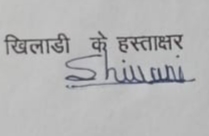 खिलाडी के हस्ताक्षर
Shivani